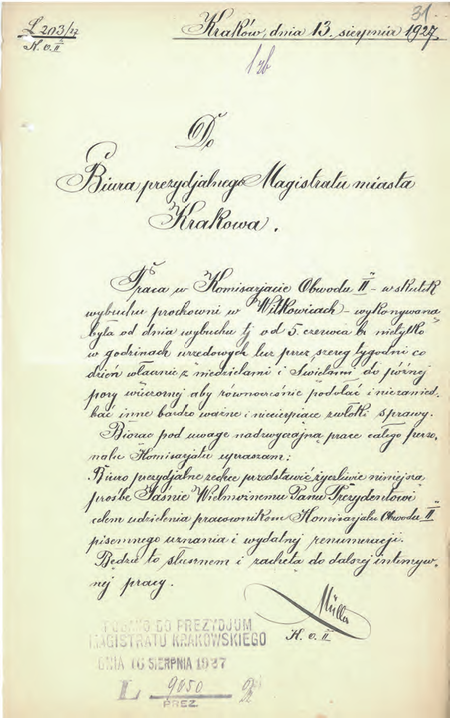 31
L 203/27 Kraków, dnia 13. sierpnia 1927
K. o. II
Do
Biura prezydjalnego Magistratu miasta
Krakowa.
Praca w Komisarjacie Obwodu II - w skutek
wybuchu prochowni w Witkowicach - wykonywana
była od dnia wybuchu tj. od 5. czerwca br. nietylko
w godzinach urzędowych lecz przez szereg tygodni co
dzień włącznie z niedzielami i świętami do późnej
pory wieczornej aby równocześnie podołać i niezanied-
bać inne bardzo ważne i niecierpiące zwłoki sprawy.
Biorąc pod uwagę nadzwyczajną pracę całego perso-
nalu Komisarjatu upraszam:
Biuro prezydjalne zechce przedstawić życzliwie niniejszą
prośbę Jaśnie Wielmożnemu Panu Prezydentowi
celem udzielenia pracownikom Komisarjatu Obwodu II
pisemnego uznania i wydatnej renumeracji.
Będzie to słusznem i zachętą do dalszej intensyw-
nej pracy.
Müller
K. o. II
PODANO DO PREZYDJUM
MAGISTRATU KRAKOWSKIEGO
DNIA 16 SIERPNIA 1927
L 9050
PREZ.